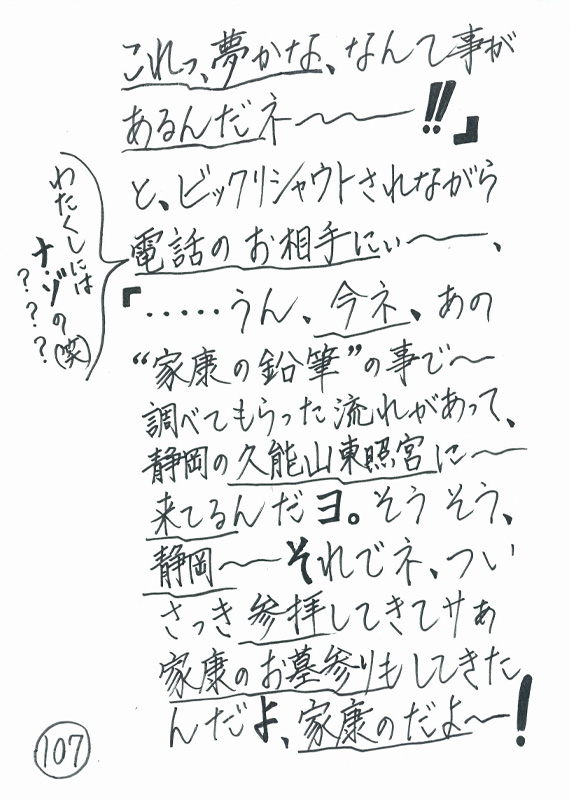 これっ、夢かな、なんて事が
あるんだネ〜〜〜!!』
と、ビックリシャウトされながら
電話のお相手にぃ〜〜、
『‥‥‥うん、今ネ、あの
“家康の鉛筆”の事で〜
調べてもらった流れがあって、
静岡の久能山東照宮に〜
来てるんだヨ。そうそう、
静岡〜〜それでネ、つい
さっき参拝してきてサぁ
家康のお墓参りもしてきた
んだよ、家康のだよ〜!
わたくしには
ナ・ゾの(笑)
????
107